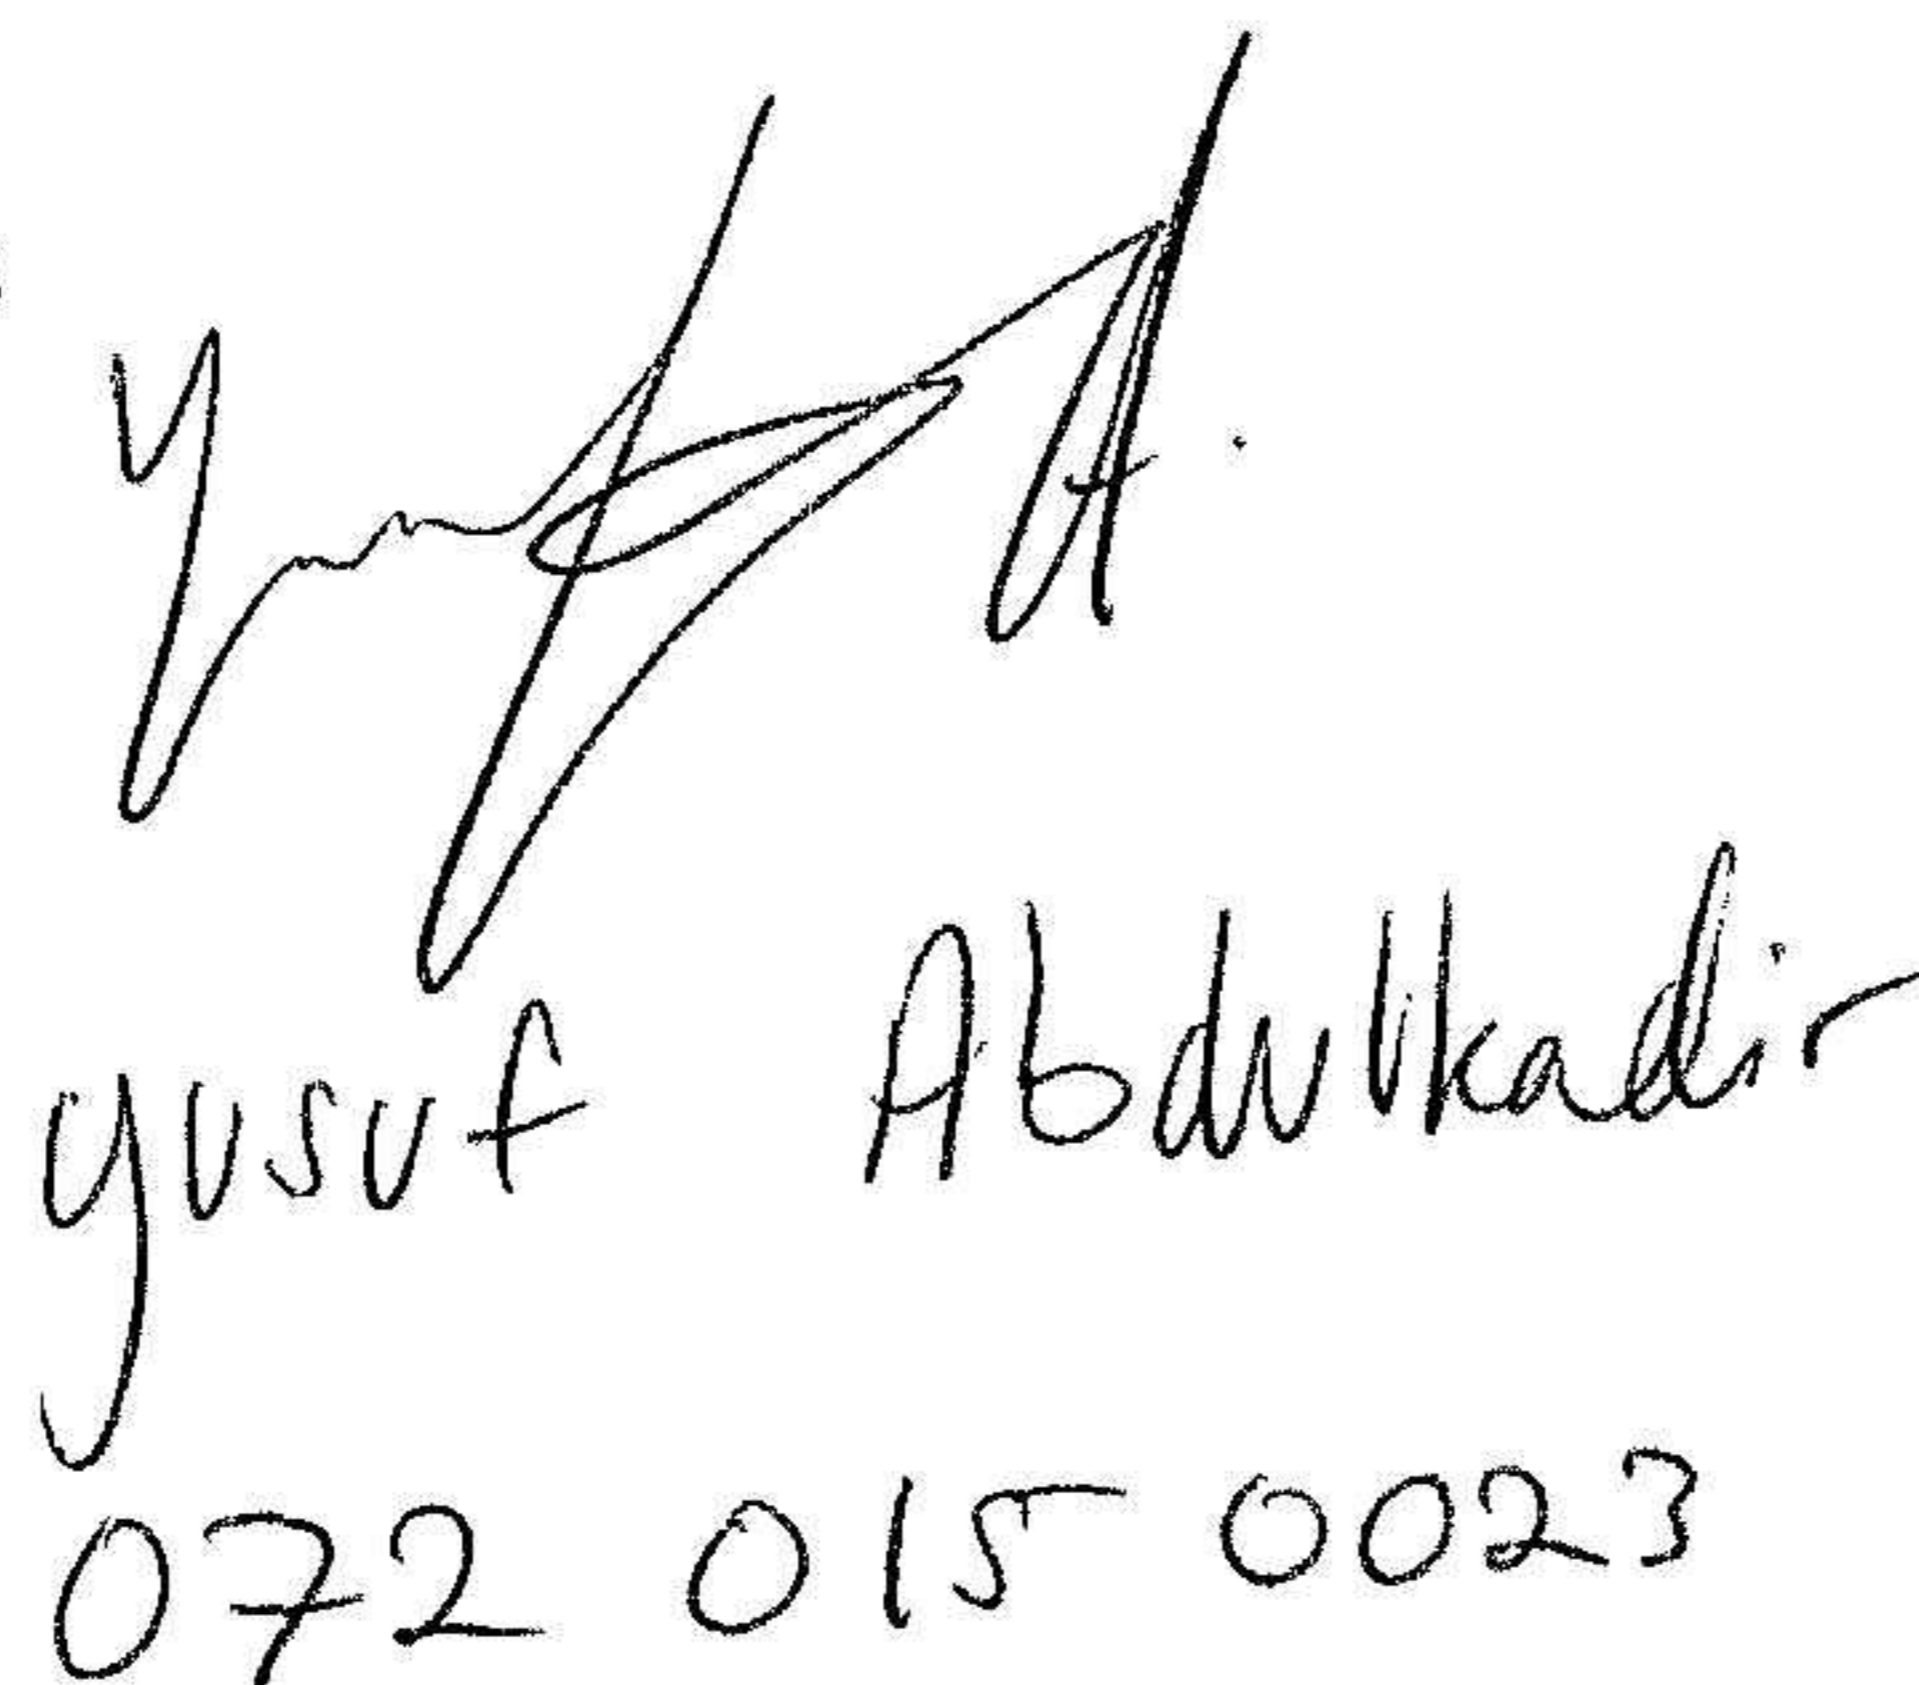 Yusuf A.
Yusuf Abdulkadir
072 015 0023